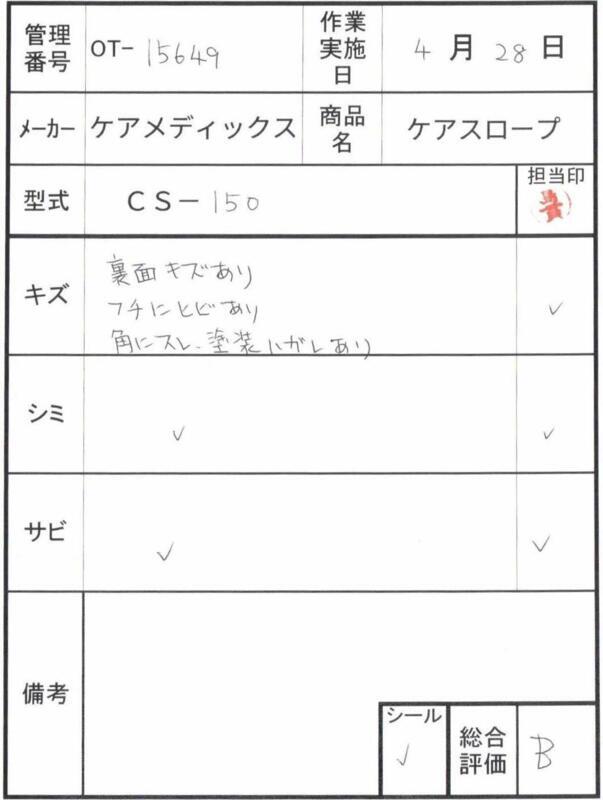 管理番号 OT-15649 作業実施日 4月28日
メーカー ケアメディックス 商品名 ケアスロープ
型式 CS-150 担当印
キズ 裏面キズあり
フチにヒビあり
角にスレ、塗装ハガレあり ✓
シミ ✓ ✓
サビ ✓ ✓
備考
シール ✓ 総合評価 B